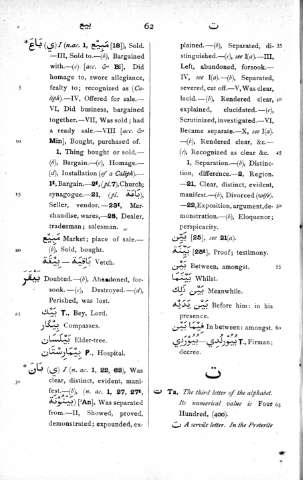 بيع 62 ت
* بَاعَ (ي) I (n.ac. 1, مَبِيع [18]), Sold.
—III, Sold to.—(b), Bargained
with.—(c) [acc. & Bi], Did
homage to, swore allegiance,
fealty to; recognised as (Ca-
5
liph).—IV, Offered for sale.—
VI, Did business, bargained
together.—VII, Was sold; had
a ready sale.—VIII [acc. &
Min], Bought, purchased of.
10
1, Thing bought or sold.—
(b), Bargain.—(c), Homage.—
(d), Installation (of a Caliph).—
synagogue.—21, (pl.
15
Seller, vendor.—
chandise, wares,—28, Dealer,
tradesman; salesman.
Market; place of sale.—
(b), Sold, bought.
20
بَاقِيَة — بِيقَة Vetch.
Doubted.—(b), Abandoned, for-
sook.—(c), Destroyed.—(d),
Perished, was lost.
بَيْك T., Bey, Lord.
25
بِيكَار Compasses.
بَيْلَسَان Elder-tree.
بِيمَارِسْتَان P., Hospital.
* بَانَ (ي) I (n.ac. 1, 22, 63), Was
clear, distinct, evident, mani-
30
fest.—(b), (n. ac. 1, 27,
['An], Was separated
from.—II, Showed, proved,
demonstrated; expounded, ex-
plained.—(b), Separated, dis-
35
tinguished.—(c), see I(a).—III,
Left, abandoned, forsook.—
IV, see I(a).—(b), Separated,
severed, cut off.—V, Was clear,
lucid.—(b), Rendered clear,
40
explained, elucidated.—(c),
Scrutinized, investigated.—VI,
Became separate.—X, see I(a).
—(b), Rendered clear, &c.—
(c), Recognised as clear &c.
45
1, Separation.—(b), Distinc-
tion, difference.—2, Region.
—21, Clear, distinct, evident,
manifest.—(b), Divorced (wife).
—22, Exposition, argument, de-
50
monstration.—(b), Eloquence;
perspicarity.
بَيِّن [25], see 21(a).
بَيِّنَة Proof; testimony.
بَيْنَ Between, amongst.
55
بَيْنَمَا Whilst.
بَيْنَ ذٰلِكَ Meanwhile.
بَيْنَ يَدَيْهِ Before him: in his
presence.
فِيمَا بَيْنَ In between; amongst.
60
T., Firman;
decree.
ت
ت Ta, The third letter of the alphabet.
Its numerical value is Four
Hundred, (400).
ت A servile letter. In the Preterite